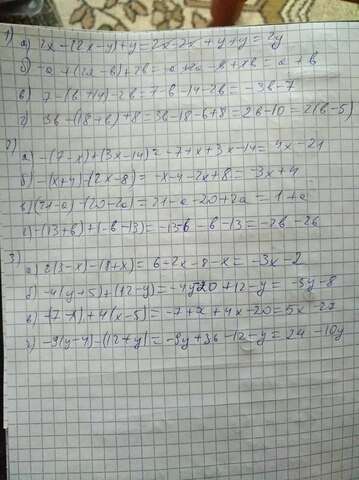 1) а) 2x-(2x-y)+y=2x-2x+y+y=2y
б) -a+(2a-b)+2b=-a+2a-b+2b=a+b
в) 7-(b+14)-2b=7-b-14-2b=-3b-7
г) 3b-(18+6)+8=3b-18-6+8=2b-10=2(b-5)
2)
а) -(7-x)+(3x-14)=-7+x+3x-14=4x-21
б) -(x+4)-(2x-8)=-x-4-2x+8=-3x+4
в) (21-a)-(20-2a)=21-a-20+2a=1+a
г) -(13+b)+(-b-13)=-13-b-b-13=-2b-26
3)
а) 2(3-x)-(8+x)=6-2x-8-x=-3x-2
б) -4(y+5)+(12-y)=-4y-20+12-y=-5y-8
в) -(7-x)+4(x-5)=-7+x+4x-20=5x-27
г) -9(y-4)-(12+y)=-9y+36-12-y=24-10y